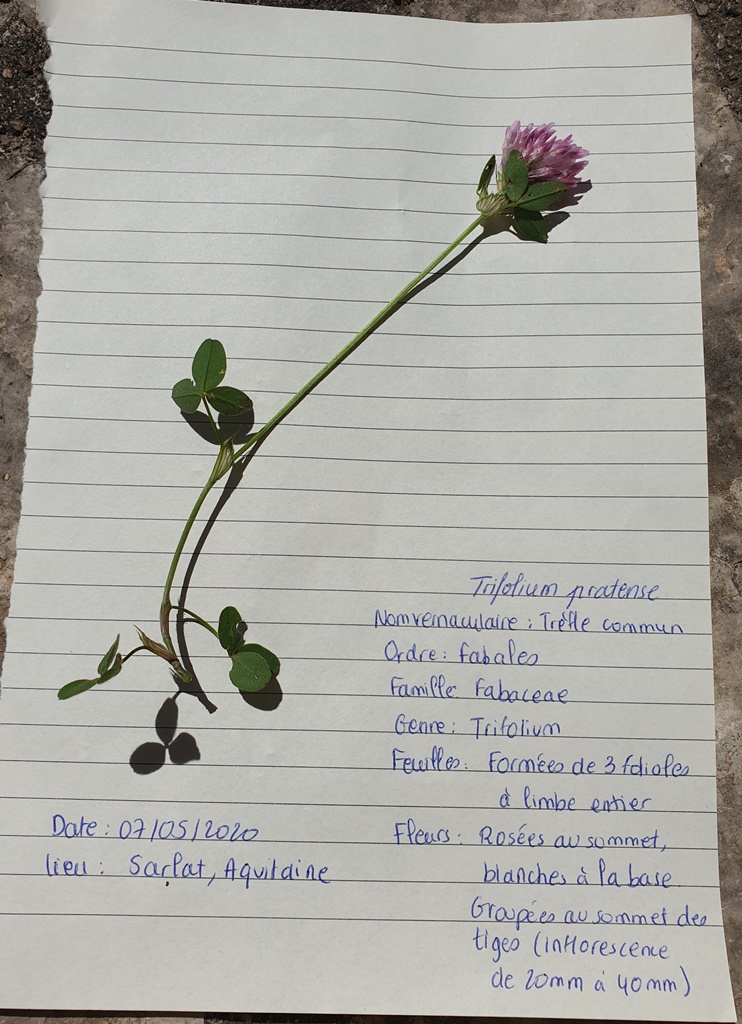 Trifolium pratense
Nom vernaculaire : Trèfle commun
Ordre : Fabales
Famille : Fabaceae
Genre : Trifolium
Feuilles : Formées de 3 folioles
à limbe entier
Fleurs : Rosées au sommet,
blanches à la base.
Groupées au sommet des
tiges (inflorescence
de 20mm à 40mm)
Date : 07/05/2020
lieu : Sarlat, Aquitaine